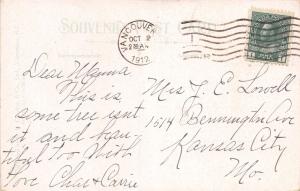 SOUVENIR POST CARD
VANCOUVER
OCT 2
1912
Dear Mamma
This is
some tree isn't
it and beau-
tiful too With
love Chas & Carrie
Mrs J. E. Lowell
1514 Bennington Ave
Kansas City
Mo.